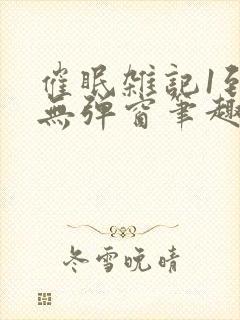 催眠雑記1到
無弹窗笔趣
冬雪晚晴